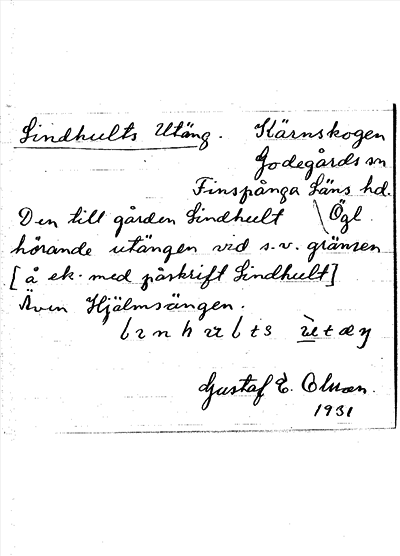 Lindhults Utäng. Kärnskogen
Godegårds sn
Finspånga Läns hd.
Den till gården Lindhult Ögl
hörande utängen vid s.v. gränsen
[å ek. med påskrift Lindhult]
Även Hjälmsängen.
Gustaf E. Olsson.
1931